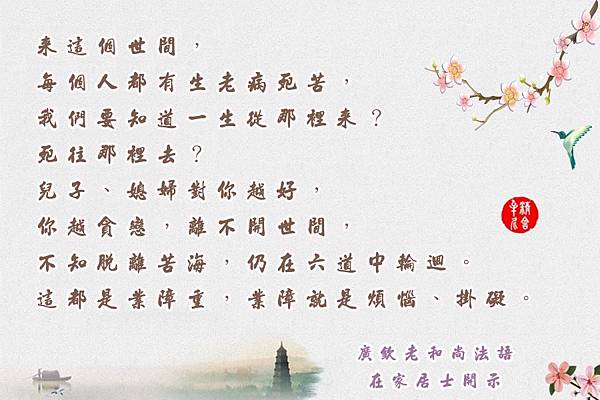 来這個世間，
每個人都有生老病死苦，
我們要知道一生從那裡来？
死往那裡去？
兒子、媳婦對你越好，
你越貪戀，離不開世間，
不知脫離苦海，仍在六道中輪迴。
這都是業障重，業障就是煩惱、掛礙。
廣欽老和尚法語
在家居士開示